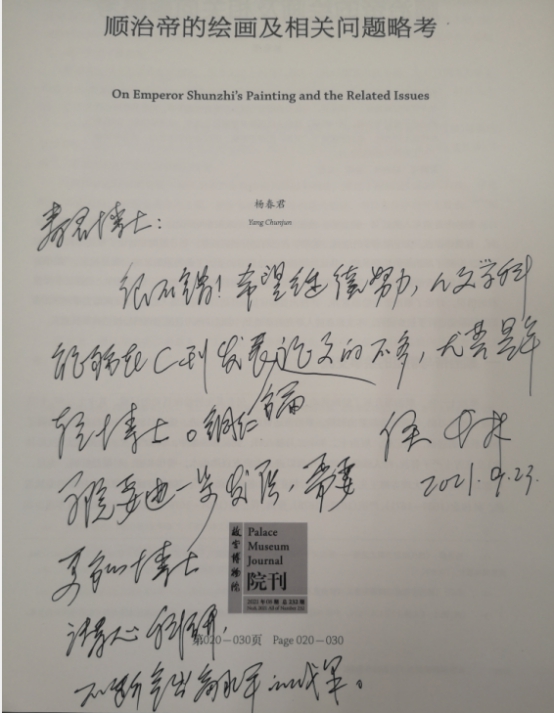 顺治帝的绘画及相关问题略考
On Emperor Shunzhi's Painting and the Related Issues
杨春君
Yang Chunjun
春君博士:
很不错!希望继续努力,人文学科
能够在C刊发表论文的不多,尤其是年
轻博士。铜仁学院要进一步发展,需要
更多的博士
潜心科研,
不断拿出高水平的成果。
2021.9.23.
故宫博物院
Palace
Museum
Journal
院刊
第020—030页 Page 020—030